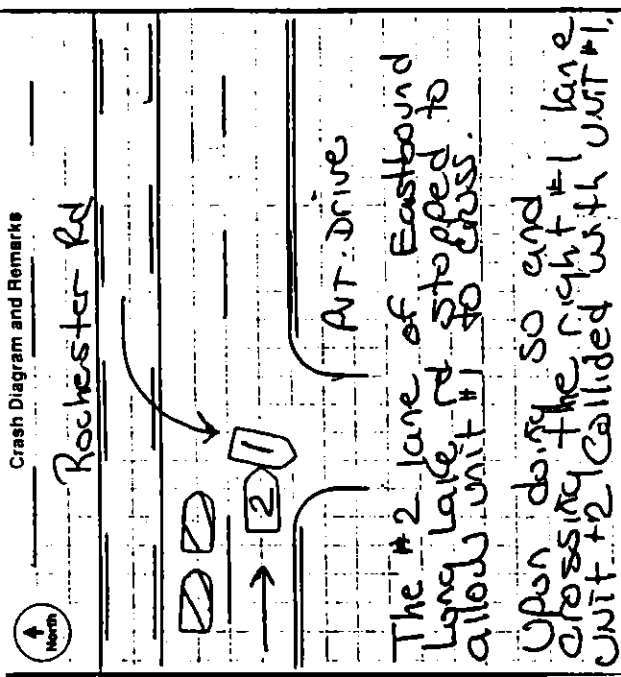 Crash Diagram and Remarks
North
Rochester Rd
1
2
Pvt. Drive
The #2 lane of Eastbound
Long Lake rd stopped to
allow unit #1 to cross.
Upon doing so and
crossing the right #1 lane
unit #2 collided with unit #1.